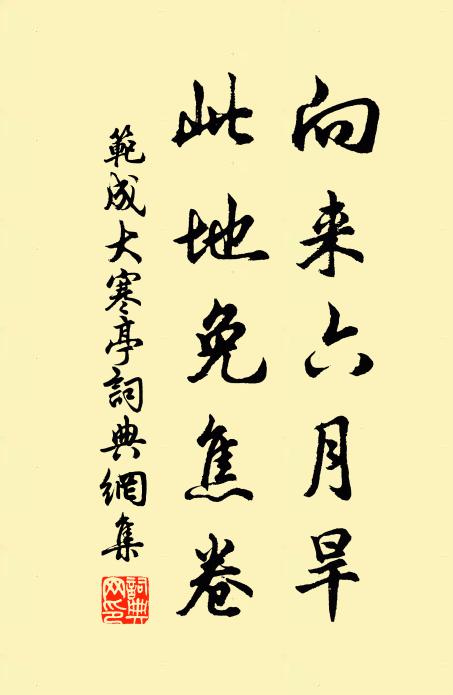 向来六月旱
此地免焦卷
範成大寒亭詞典網集
詞典网印